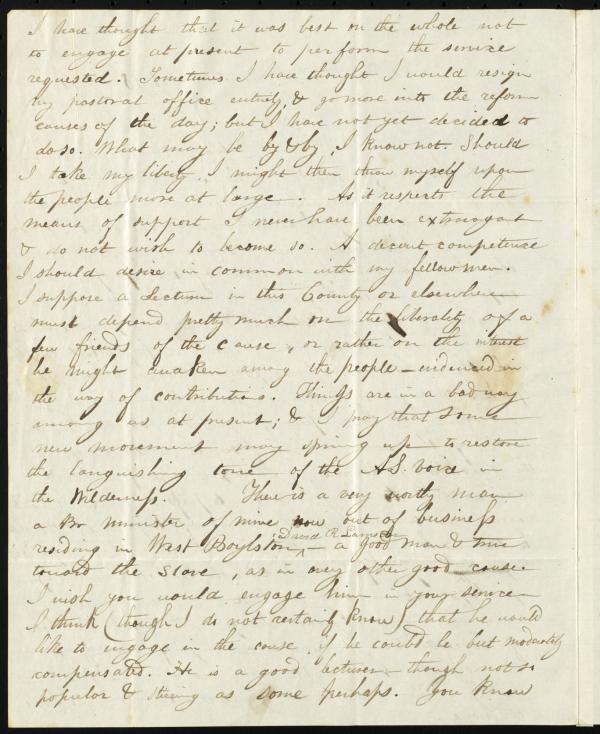 I have thought that it was best on the whole not
to engage at present to perform the service
requested. Sometimes I have thought I would resign
my pastoral office entirely, & go more into the reform
causes of the day; but I have not yet decided to
do so. What may be by & by, I know not. Should
I take my liberty, I might then throw myself upon
the people more at large. As it respects the
means of support I never have been extravagant
& do not wish to become so. A decent competence
I should desire in common with my fellow men.
I suppose a Lecturer in this County or elsewhere
must depend pretty much on the liberality of a
few friends of the cause, or rather on the interest
he might awaken among the people – evidenced in
the way of contributions. Things are in a bad way
among us at present; & I pray that some
new movement may spring up to restore
the languishing tone of the A.S. voice in
the Wilderness. There is a very worthy man
a Br minister of mine now out of business
David R. Lamson
residing in West Boylston, – a good man & true
toward the Slave, as in every other good cause.
I wish you would engage him in your service
I think (though I do not certainly know) that he would
like to engage in the cause, if he could be but moderately
compensated. He is a good lecturer – though not so
popular & stirring as some perhaps. You know